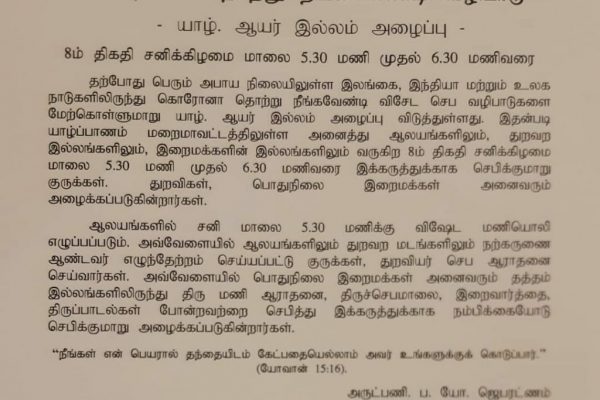 - யாழ். ஆயர் இல்லம் அழைப்பு -
8ம் திகதி சனிக்கிழமை மாலை 5.30 மணி முதல் 6.30 மணிவரை
தற்போது பெரும் அபாய நிலையிலுள்ள இலங்கை, இந்தியா மற்றும் உலக
நாடுகளிலிருந்து கொரோனா தொற்று நீங்கவேண்டி விசேட செப வழிபாடுகளை
மேற்கொள்ளுமாறு யாழ். ஆயர் இல்லம் அழைப்பு விடுத்துள்ளது. இதன்படி
யாழ்ப்பாணம் மறைமாவட்டத்திலுள்ள அனைத்து ஆலயங்களிலும், துறவற
இல்லங்களிலும், இறைமக்களின் இல்லங்களிலும் வருகிற 8ம் திகதி சனிக்கிழமை
மாலை 5.30 மணி முதல் 6.30 மணிவரை இக்கருத்துக்காக செபிக்குமாறு
குருக்கள். துறவிகள், பொதுநிலை இறைமக்கள் அனைவரும்
அழைக்கப்படுகின்றார்கள்.
ஆலயங்களில் சனி மாலை 5.30 மணிக்கு விஷேட மணியொலி
எழுப்பப்படும். அவ்வேளையில் ஆலயங்களிலும் துறவற மடங்களிலும் நற்கருணை
ஆண்டவர் எழுந்தேற்றம் செய்யப்பட்டு குருக்கள், துறவியர் செப ஆராதனை
செய்வார்கள். அவ்வேளையில் பொதுநிலை இறைமக்கள் அனைவரும் தத்தம்
இல்லங்களிலிருந்து திரு மணி ஆராதனை, திருச்செபமாலை, இறைவார்த்தை,
திருப்பாடல்கள் போன்றவற்றை செபித்து இக்கருத்துக்காக நம்பிக்கையோடு
செபிக்குமாறு அழைக்கப்படுகின்றார்கள்.
“நீங்கள் என் பெயரால் தந்தையிடம் கேட்பதையெல்லாம் அவர் உங்களுக்குக் கொடுப்பார்.”
(யோவான் 15:16).
அருட்பணி. ப. யோ. ஜெபரட்ணம்